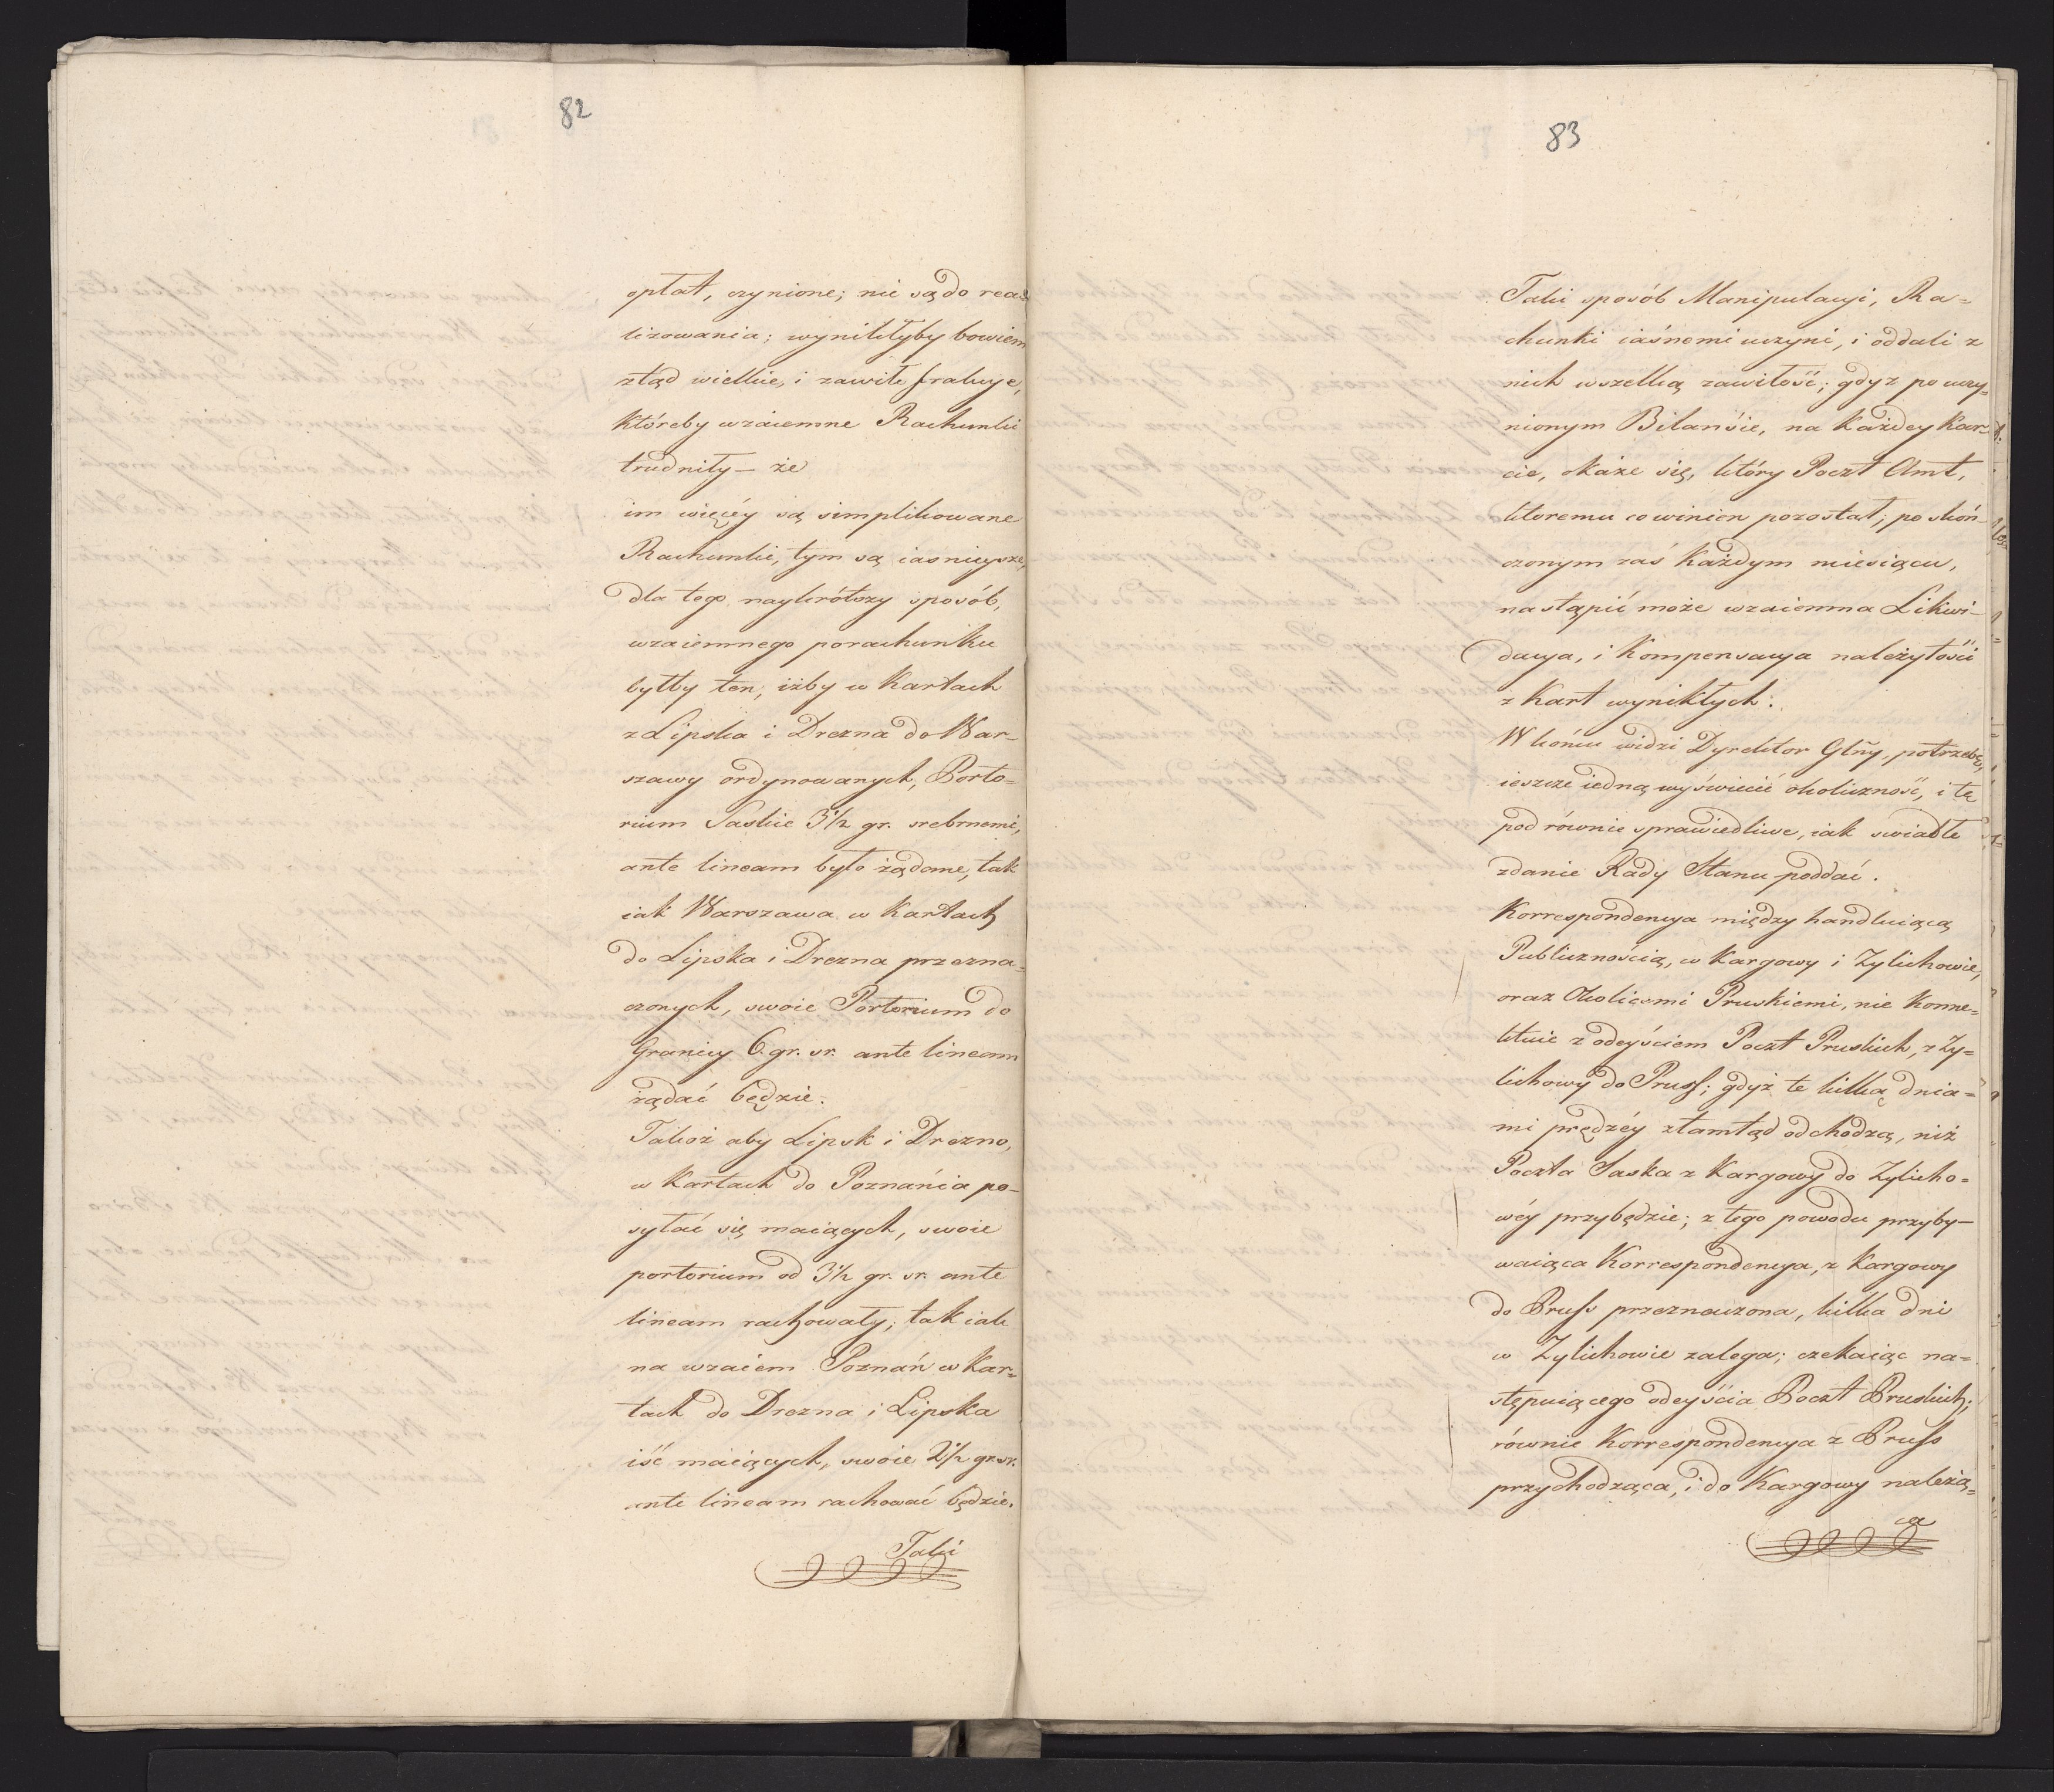 82
opłat, czynione; nie są do rea-
lizowania; wynikłyby bowiem
ztąd wielkie, i zawiłe frakcye,
któreby wzaiemne Rachunki
trudniły — że
im więcéy są simplikowane
Rachunkie, tym są iasnieysze,
dla tego naykrótszy sposób,
wzaiemnego porachunku
byłby ten; iżby w Kartach
z Lipska i Drezna do War-
szawy ordynowanych, Porto-
rium Saskie 3 1/2 gr. srebrnemi,
ante lineam było żądane, tak
iak Warszawa w Kartach
do Lipska i Drezna przezna-
czonych, swoie Portorium do
Granicy 6. gr. sr. ante lineam
żądać będzie.
Takoż aby Lipsk i Drezno,
w Kartach do Poznańia po-
syłać się maiących, swoie
portorium od 3 1/2 gr. sr. ante
lineam rachowały; tak iak
na wzaiem Poznań w Kar-
tach do Drezna i Lipska
iść maiących, swoie 2 1/2 gr. sr.
ante lineam rachować będzie.
Taki
83
Taki sposób Manipulacyi, Ra=
chunki iaśnemi uczyni, i oddali z
nich wszelką zawiłość; gdyz po uczy-
nionym Bilansie, na każdey Kar-
cie, okaże się, który Poczt Amt,
ktoremu co winien pozostał; po skoń-
czonym zaś każdym miesiącu,
nastąpić może wzaiemna Likwi-
dacya, i kompensacya należytości
z Kart wynikłych.
W końcu widzi Dyrektor Głny. potrzebę,
ieszcze iedną wyświecić okoliczność, i tę
pod równie sprawiedliwe, iak swiatłe
zdanie Rady Stanu poddać.
Korrespondencya między handluiącą
Publicznością, w Kargowy i Zylichowie,
oraz Okolicami Pruskiemi, nie konne=
ktuie z odeyściem Poczt Pruskich, z Zy=
lichowy do Pruss; gdyż te kilką dnia=
mi prędzéy ztamtąd odchodzą, niż
Poczta Saska z Kargowy do Zylicho=
wéy przybędzie; z tego powodu przyby-
waiąca Korrespondencya, z Kargowy
do Pruss przeznaczona, kilka dni
w Zylichowie zalega; czekaiąc na=
stępuiącego odeyścia Poczt Pruskich;
równie Korrespondencya z Pruss
przychodząca, i do Kargowy należą=
ca